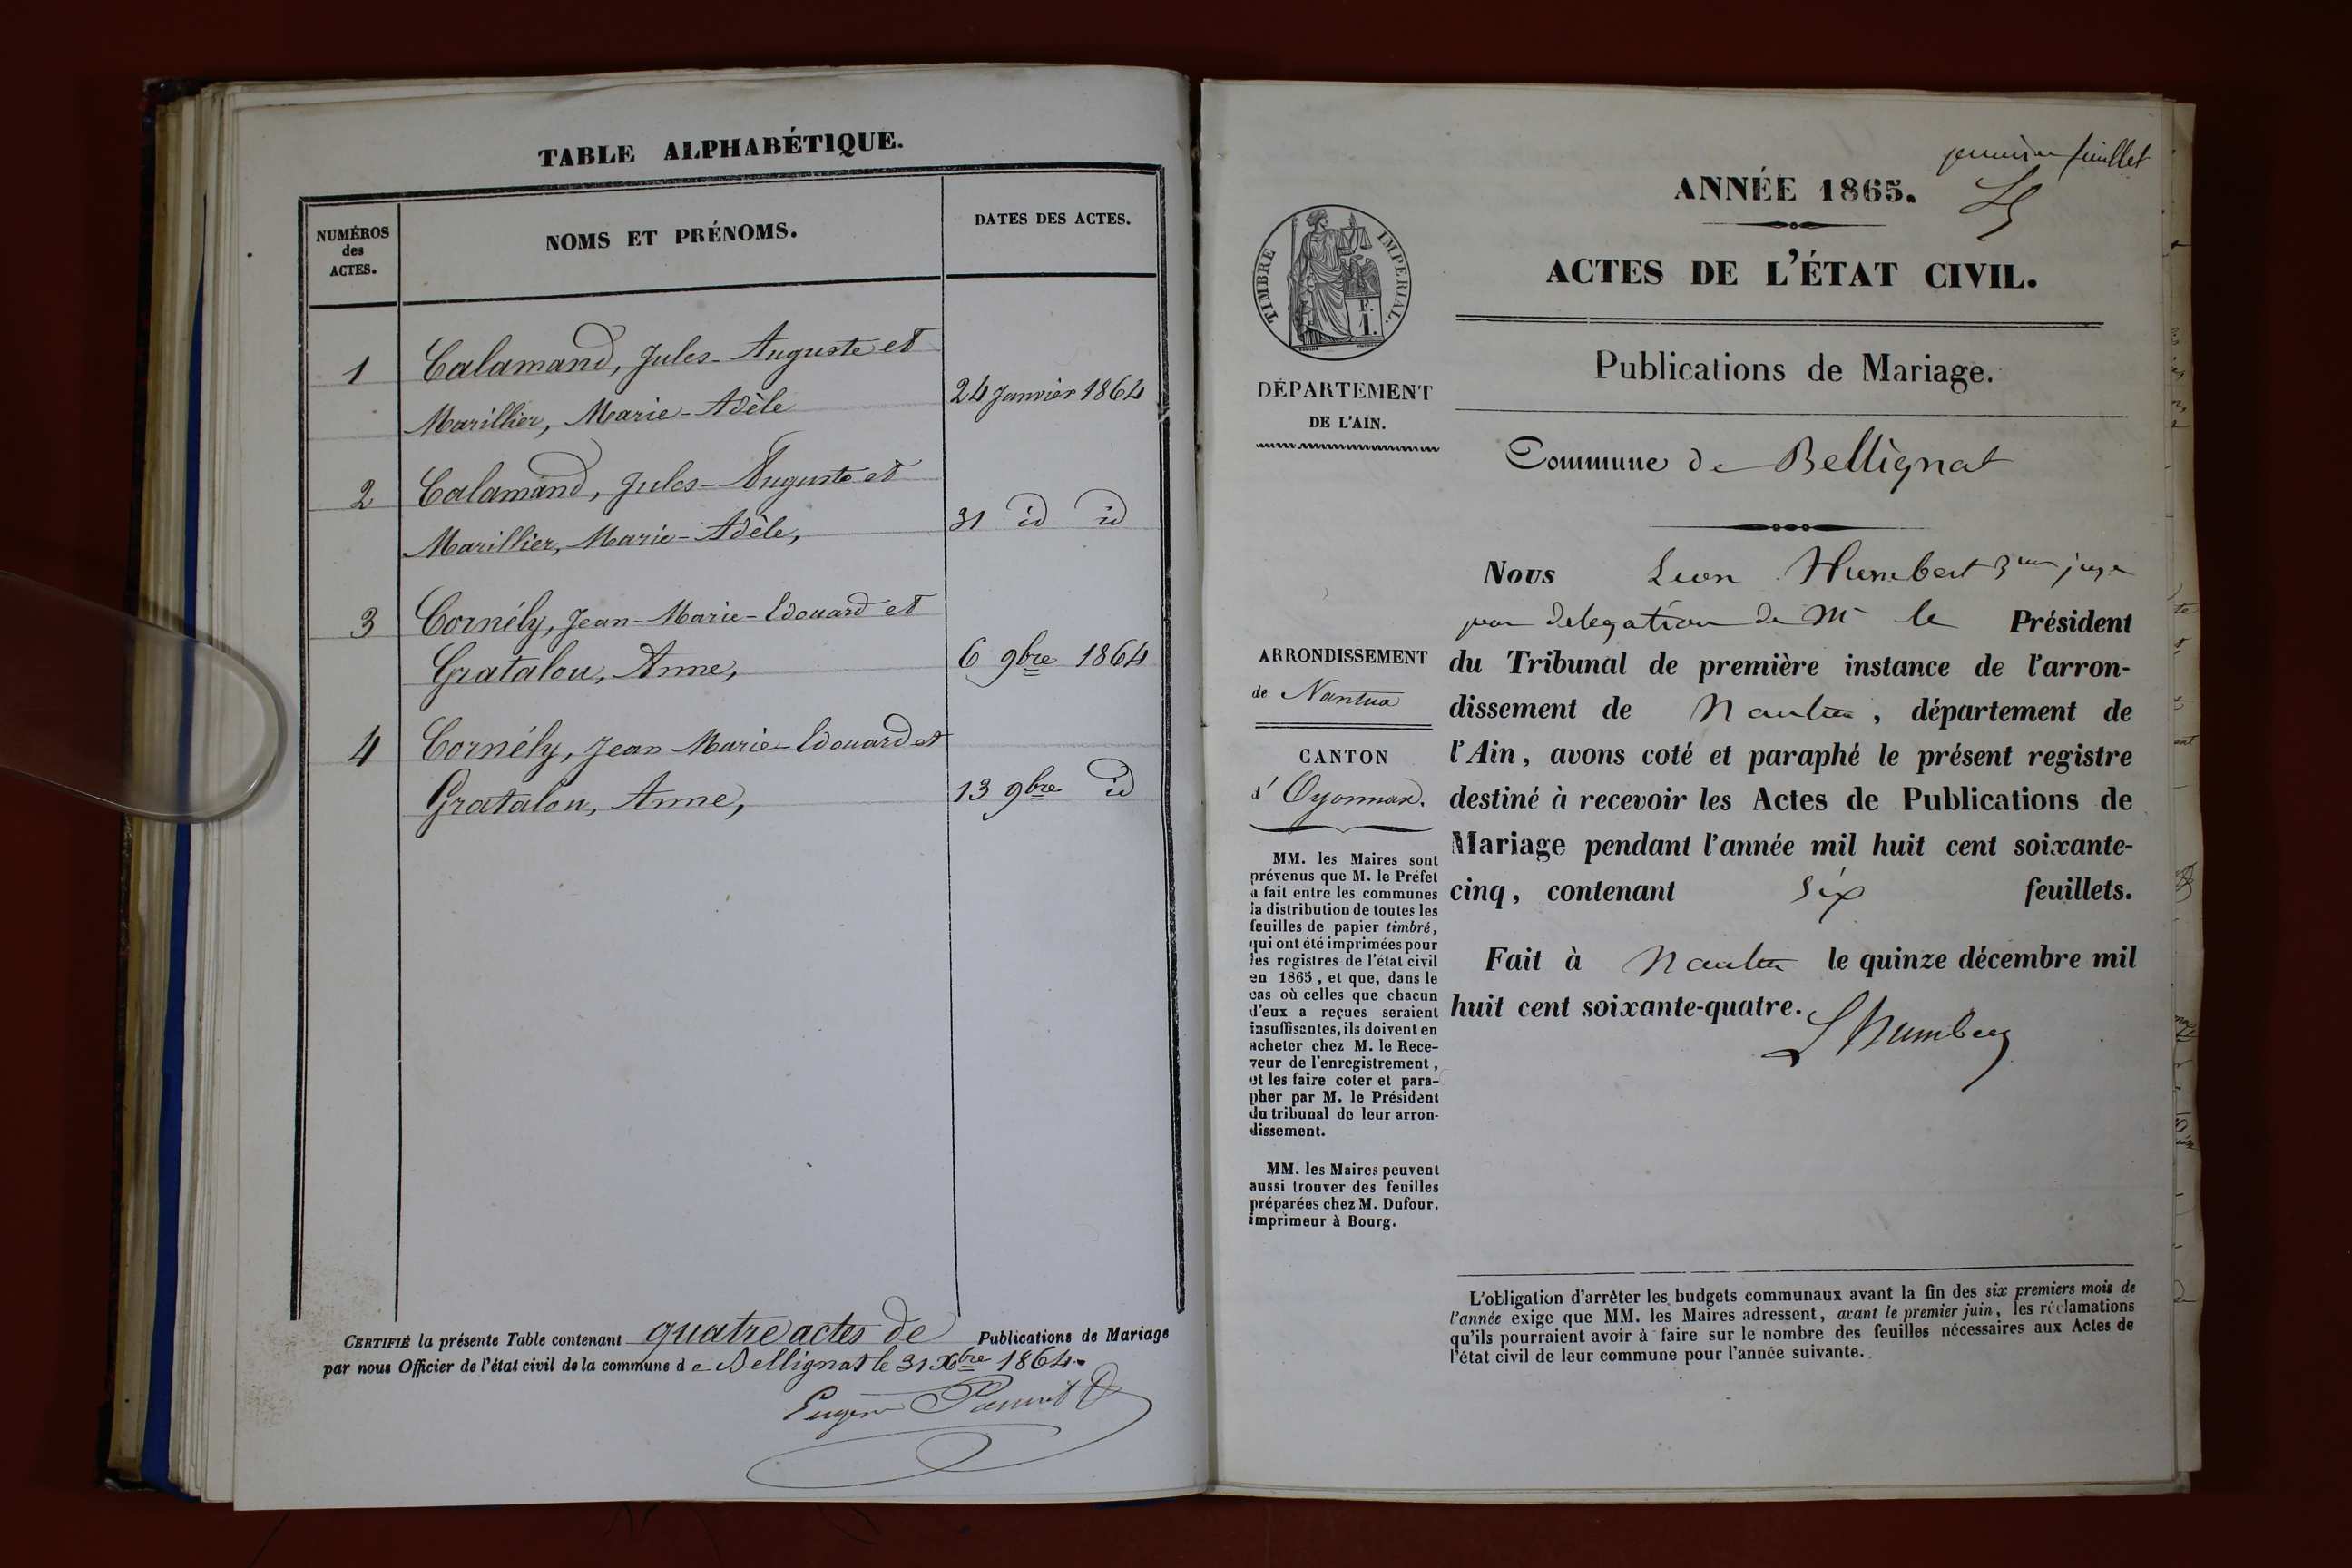 TABLE ALPHABÉTIQUE.
NUMÉROS
des
ACTES.
NOMS ET PRÉNOMS.
DATES DES ACTES.
1 Calamand, Jules-Auguste et
Marillier, Marie-Adèle 24 Janvier 1864
2 Calamand, Jules-Auguste et
Marillier, Marie-Adèle, 31 id id
3 Cornély, Jean-Marie-Edouard et
Gratalou, Anne, 6 9bre 1864
4 Cornély, Jean Marie-Edouard et
Gratalou, Anne, 13 9bre id
CERTIFIÉ la présente Table contenant quatre actes de Publications de Mariage
par nous Officier de l'état civil de la commune de Bellignat le 31 Xbre 1864.
Eugène
premier feuillet
ANNÉE 1865.
TIMBRE IMPERIAL.
F.
1.
ACTES DE L'ÉTAT CIVIL.
Publications de Mariage.
DÉPARTEMENT
DE L'AIN.
Commune de Bellignat
ARRONDISSEMENT
de Nantua
CANTON
d'Oyonnax.
MM. les Maires sont
prévenus que M. le Préfet
a fait entre les communes
la distribution de toutes les
feuilles de papier timbré,
qui ont été imprimées pour
les registres de l'état civil
en 1865, et que, dans le
cas où celles que chacun
d'eux a reçues seraient
insuffisantes, ils doivent en
acheter chez M. le Rece-
veur de l'enregistrement,
et les faire coter et para-
pher par M. le Président
du tribunal de leur arron-
dissement.
MM. les Maires peuvent
aussi trouver des feuilles
préparées chez M. Dufour,
imprimeur à Bourg.
Nous Leon Humbert juge
par delegation de Mr le Président
du Tribunal de première instance de l'arron-
dissement de Nantua, département de
l'Ain, avons coté et paraphé le présent registre
destiné à recevoir les Actes de Publications de
Mariage pendant l'année mil huit cent soixante-
cinq, contenant six feuillets.
Fait à Nantua le quinze décembre mil
huit cent soixante-quatre.
L Humbert
L'obligation d'arrêter les budgets communaux avant la fin des six premiers mois de
l'année exige que MM. les Maires adressent, avant le premier juin, les réclamations
qu'ils pourraient avoir à faire sur le nombre des feuilles nécessaires aux Actes de
l'état civil de leur commune pour l'année suivante.